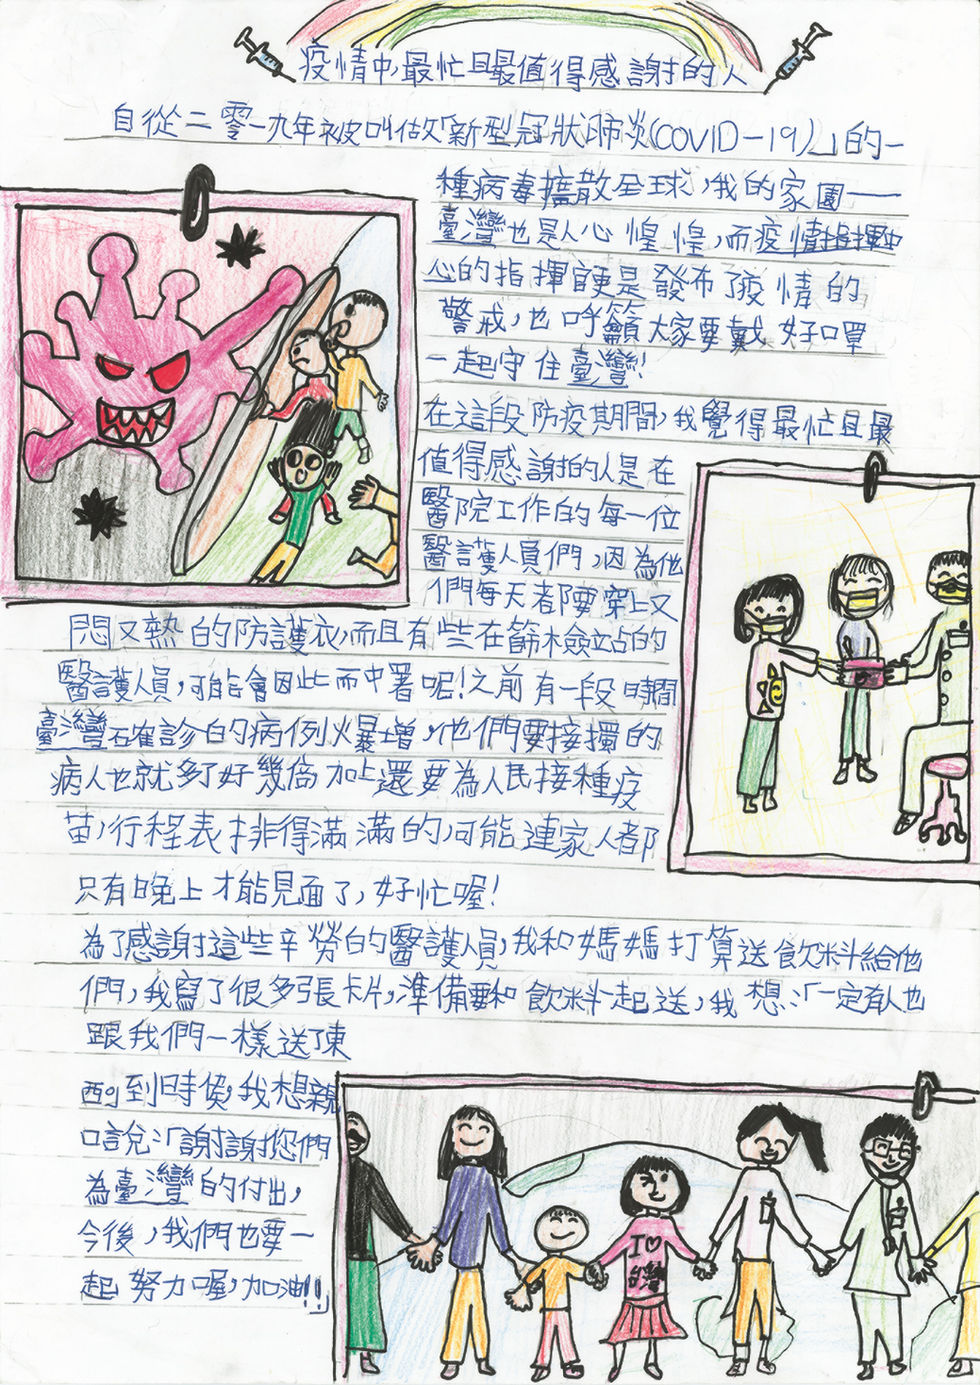 疫情中,最忙且最值得感謝的人
自從二零一九年被叫做「新型冠狀肺炎(COVID-19)」的一
種病毒擴散全球,我的家園——
臺灣也是人心惶惶,而疫情指揮中
心的指揮官更是發布了疫情的
警戒,也呼籲大家要戴好口罩
一起守住臺灣!
在這段防疫期間,我覺得最忙且最
值得感謝的人是在
醫院工作的每一位
醫護人員們,因為他
們每天都要穿上又
悶又熱的防護衣,而且有些在篩檢站的
醫護人員,可能會因此而中署呢!之前有一段時間
臺灣確診的病例爆增,他們要接擱的
病人也就多了好幾倍加上還要為人民接種疫
苗,行程表排得滿滿的,可能連家人都
只有晚上才能見面了,好忙喔!
為了感謝這些辛勞的醫護人員,我和媽媽打算送飲料給他
們,我寫了很多張卡片,準備要和飲料一起送,我想:「一定有人也
跟我們一樣送了東
西」到時候,我想親
口說:「謝謝您們
為臺灣的付出,
今後,我們也要一
起努力喔,加油!!」
I♡
台灣